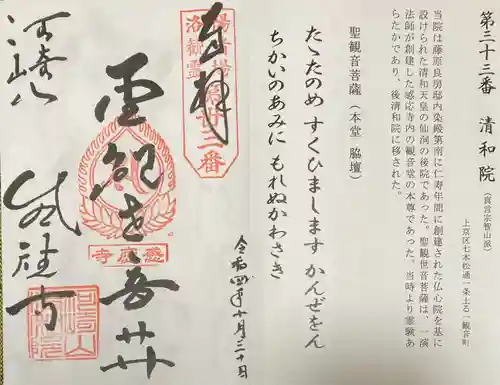 第三十三番 清和院(真言宗智山派)
上京区七本松通一条上る一観音町
当院は藤原良房邸内染殿第南に仁寿年間に創建された仏心院を基に
設けられた清和天皇の仙洞の後院であった。聖観世音菩薩は、一演
法師が創建した感応寺内の観音堂の本尊であった。当時より霊験あ
らたかであり、後清和院に移された。
聖観音菩薩(本堂 脇壇)
たゞたのめ すくひまします かんぜをん
ちかいのあみに もれぬかわさき
令和四年十月三十日
奉拝
洛陽観音
霊場第卅三番
聖観世音
感應寺
河崎
感應寺